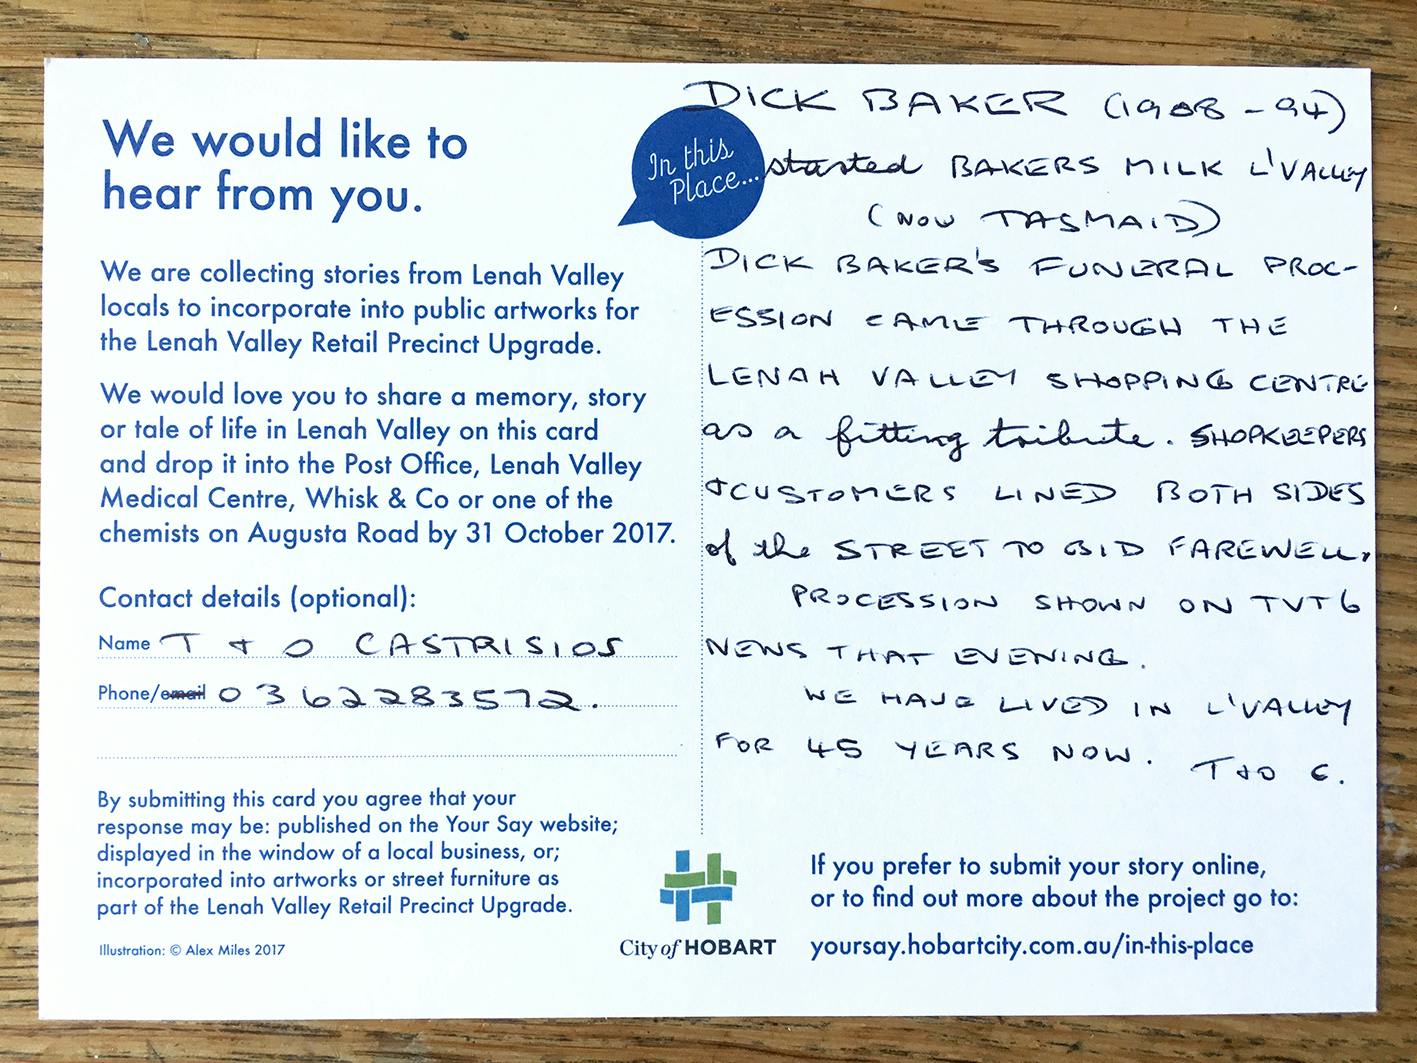 We would like to
hear from you.
We are collecting stories from Lenah Valley
locals to incorporate into public artworks for
the Lenah Valley Retail Precinct Upgrade.
We would love you to share a memory, story
or tale of life in Lenah Valley on this card
and drop it into the Post Office, Lenah Valley
Medical Centre, Whisk & Co or one of the
chemists on Augusta Road by 31 October 2017.
Contact details (optional):
Name T + O CASTRISIOS
Phone/email 0362283572.
By submitting this card you agree that your
response may be: published on the Your Say website;
displayed in the window of a local business, or;
incorporated into artworks or street furniture as
part of the Lenah Valley Retail Precinct Upgrade.
Illustration: © Alex Miles 2017
In this
Place...
DICK BAKER (1908 - 94)
started BAKERS MILK L'VALLEY
(NOW TASMAID)
DICK BAKER'S FUNERAL PROC-
ESSION CAME THROUGH THE
LENAH VALLEY SHOPPING CENTRE
as a fitting tribute. SHOPKEEPERS
+ CUSTOMERS LINED BOTH SIDES
of the STREET TO BID FAREWELL.
PROCESSION SHOWN ON TVT6
NEWS THAT EVENING.
WE HAVE LIVED IN L'VALLEY
FOR 45 YEARS NOW. T+O C.
City of HOBART
If you prefer to submit your story online,
or to find out more about the project go to:
yoursay.hobartcity.com.au/in-this-place